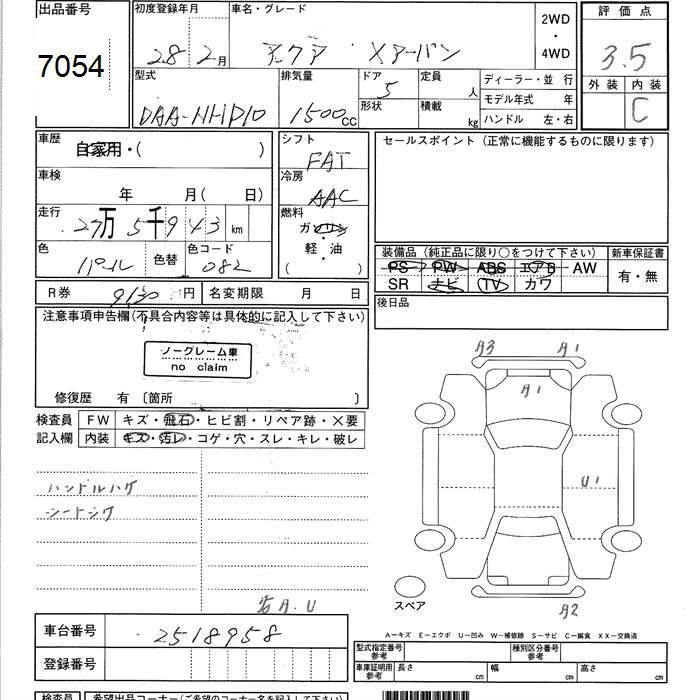 出品番号
7054
初度登録年月
28年 2月
車名・グレード
アクア Xアーバン
2WD
・
4WD
評価点
3.5
外装 内装
C
型式
DAA-NHP10
排気量
1500cc
ドア
5
形状
定員
人
積載
kg
ディーラー・並 行
モデル年式 年
ハンドル 左・右
車歴
自家用・( )
車検
年 月( 日)
走行
27万 5千 9 4 3 km
色
パール
色替
色コード
082
シフト
FAT
冷房
AAC
燃料
ガソリン
軽・油
( )
セールスポイント(正常に機能するものに限ります)
装備品(純正品に限り○をつけて下さい)
PS PW ABS エアB AW
SR ナビ TV カワ
新車保証書
有・無
後日品
R券 9130 円 名変期限 月 日
注意事項申告欄(不具合内容等は具体的に記入して下さい)
ノークレーム車
no claim
修復歴 有〔箇所 〕
検査員
記入欄
FW キズ・飛石・ヒビ割・リペア跡・×要
内装 キズ・汚レ・コゲ・穴・スレ・キレ・破レ
ハンドルハゲ
シートシワ
A3 A1
A1
U1
A2
スペア
A―キズ E―エクボ U―凹み W―補修跡 S―サビ C―腐食 XX―交換済
車台番号 2518958
登録番号
型式指定番号
参考
種別区分番号
参考
車庫証明用
参考
長さ cm 幅 cm 高さ cm
検査員 希望出品コーナー(ご希望のコーナー名を記入して下さい)